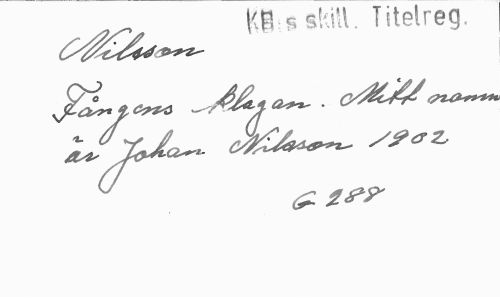 KB:s skill. Titelreg.
Nilsson
Fångens klagan. Mitt namn
är Johan Nilsson 1902
G 288